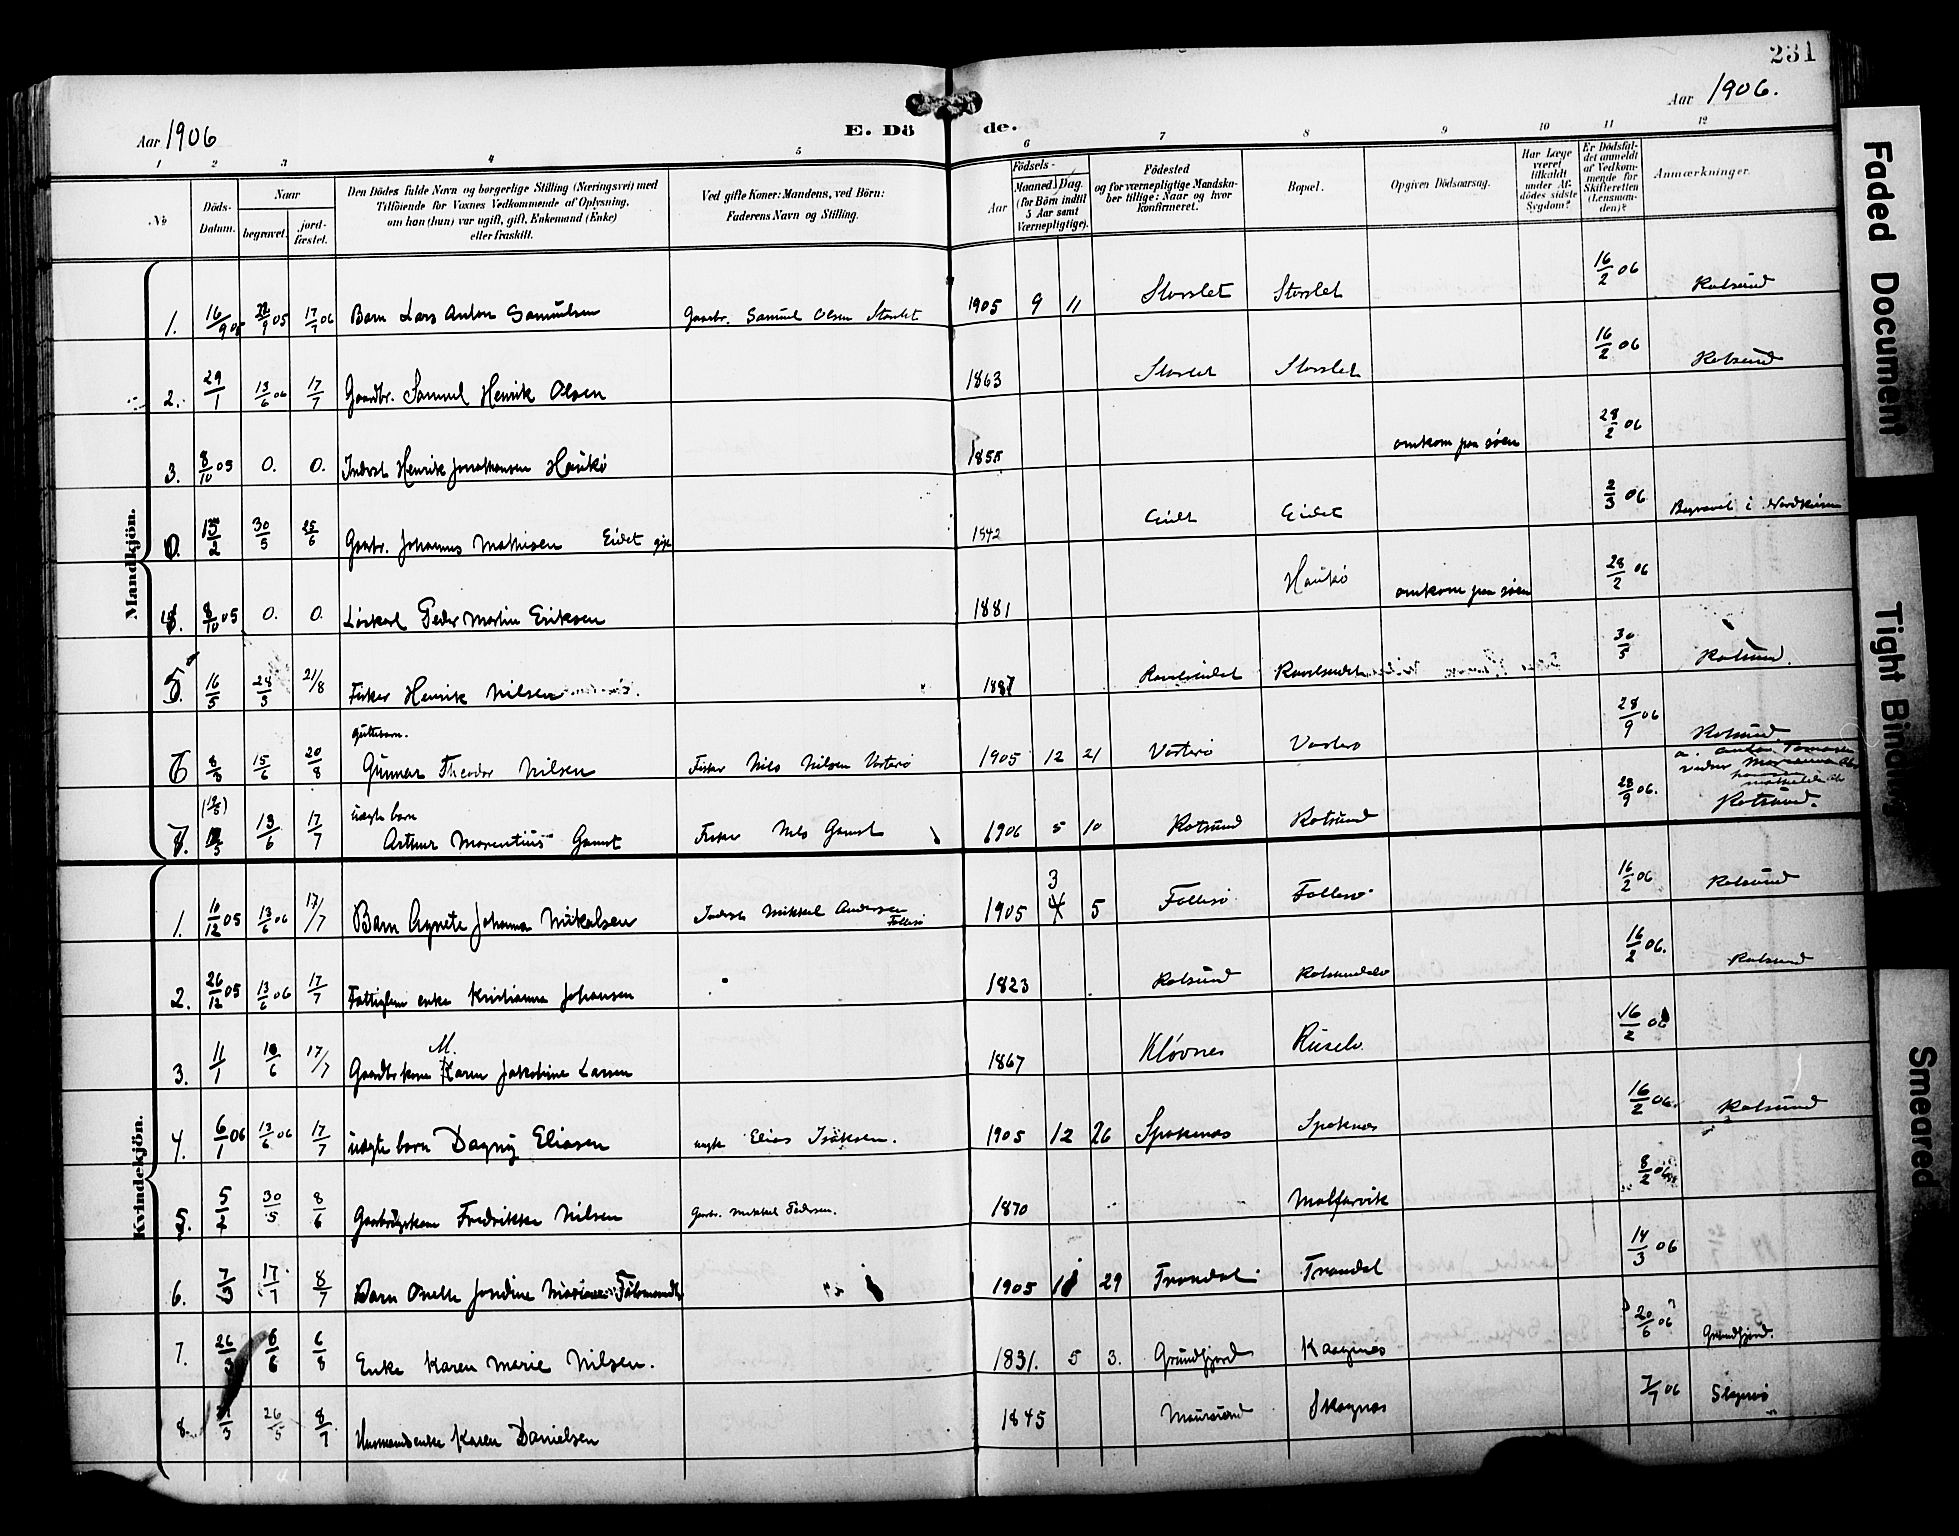 231
Aar 1906
E. Dö de.
Aar 1906.
1 2 3 4 5 6 7 8 9 10 11 12
No
Döds-Datum.
Naar
begravet.
jord-fæstet.
Den Dödes fulde Navn og borgerlige Stilling (Næringsvei) med
Tilföiende for Voxnes Vedkommende af Oplysning,
om han (hun) var ugift, gift, Enkemand (Enke)
eller fraskilt.
Ved gifte Koner: Mandens, ved Börn:
Faderens Navn og Stilling.
Födsels-
Aar
Maaned. Dag.
(for Börn indtil
5 Aar samt
Værnepligtige).
Födested
og for værnepligtige Mandskaber tillige: Naar og hvor
konfirmeret.
Bopæl.
Opgiven Dödsaarsag.
Har Læge
været
tilkaldt
under Afdödes sidste
Sygdom?
Er Dödsfaldet anmeldt
af Vedkommende for
Skifteretten
(Lensmanden)?
Anmærkninger.
Mandkjön.
1. 16/9 05 /9 05 17/7 06 Barn Lars Anton Samuelsen Gaardbr. Samuel Olsen Storslet 1905 9 11 Storslet Storslet 16/2 06 Rotsund
2. 29/1 13/6 06 17/7 Gaardbr. Samuel Henrik Olsen 1863 Storslet Storslet 16/2 06 Rotsund
3. 8/10 05 0. 0. Inderst Henrik Jonathansen Haukö 1855 omkom paa söen 28/2 06
/2 30/5 25/6 Gaarbr. Johannes Mathisen Eidet gift 1842 Eidet Eidet 2/3 06 Begravet i Nordkirken
4. 8/10 05 0. 0. Löskarl Peder Martin Eriksen 1881 Haukö omkom paa söen 28/2 06
5. 16/5 28/5 21/8 Fisker Henrik Nilsen 1887 Ravelseidet Ravelseidet 30/5 Rotsund.
6 8/ 15/6 20/8 guttebarn. Gunnar Theodor Nilsen Fisker Nils Nilsen Vorterö 1905 12 21 Vorterö Vorterö 28/9 06 Rotsund
7. 13/6 17/7 uægte barn Arthur Morentius Gamst Fisker Nils Gamst 1906 5 10 Rotsund Rotsund 28/9 06. Rotsund.
Kvindekjön.
1. 10/12 05 13/6 06 17/7 Barn Agnete Johanna Mikalsen Inderst Mikkel Andersen Follesö 1905 3 5 Follesö Follesö 16/2 06 Rotsund
2. 26/12 05 13/6 06 17/7 Fattiglem enke Kristianna Johansen 1823 Rotsund Rotsundelv 16/2 06. Rotsund
3. 11/1 /6 17/7 Gaardbrkone M. Karen Jakobine Larsen 1867 Klövnes Ruselv. 16/2 06
4. 6/1 06 13/6 06 17/7 uægte barn Dagny Eliasen ungk Elias Isaksen. 1905 12 26 Spaknæs Spaknæs 16/2 06. Rotsund
5. 5/ 30/5 8/6 Gaarbrugskone Fredrikke Nilsen Gaarbr. Mikkel Pedersen. 1870 Malfarvik 8/2 06
6. 7/3 17/7 8/7 Barn Onelle Jondine 1905 1 29 Trondal Trondal 14/3 06
7. 26/3 6/6 6/8 Enke Karen Marie Nilsen. 1831. 5 3. Grundfjord Kaagnæs 20/6 06 Grundfjord.
8. /3 26/5 8/7 Husmandsenke Karen Danielsen 1845 Maursund Skagnæs 7/7 06
Faded Document
Tight Binding
Smeared